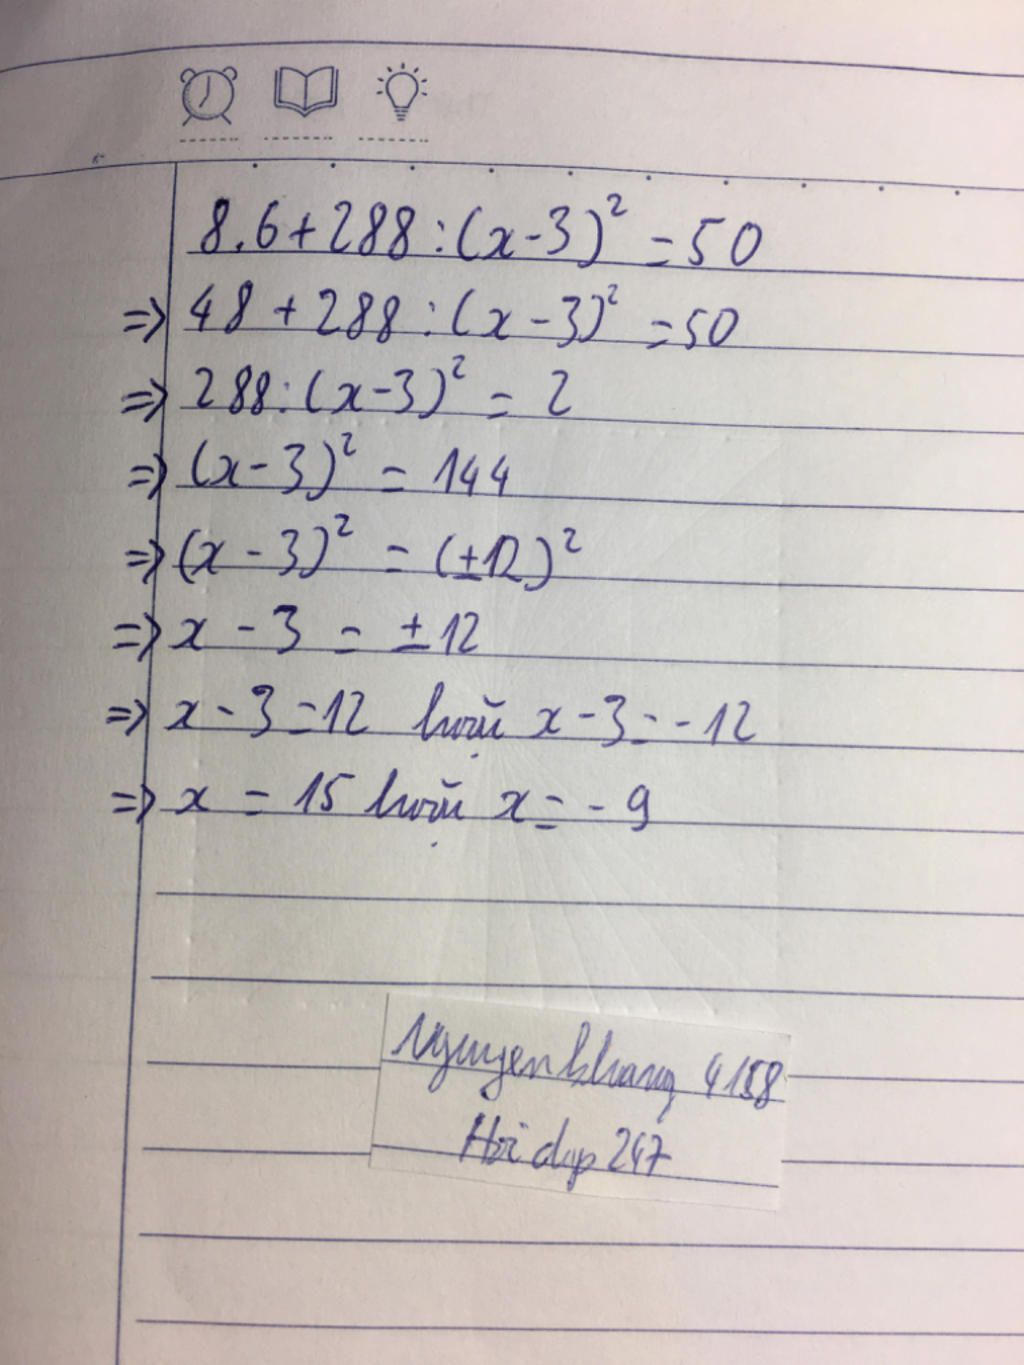 8.6+288:(x-3)² = 50
=> 48 + 288:(x-3)² = 50
=> 288:(x-3)² = 2
=> (x-3)² = 144
=> (x-3)² = (±12)²
=> x - 3 = ±12
=> x - 3 = 12 hoặc x - 3 = - 12
=> x = 15 hoặc x = - 9
Nguyenkhang 4158
Hoi dap 247